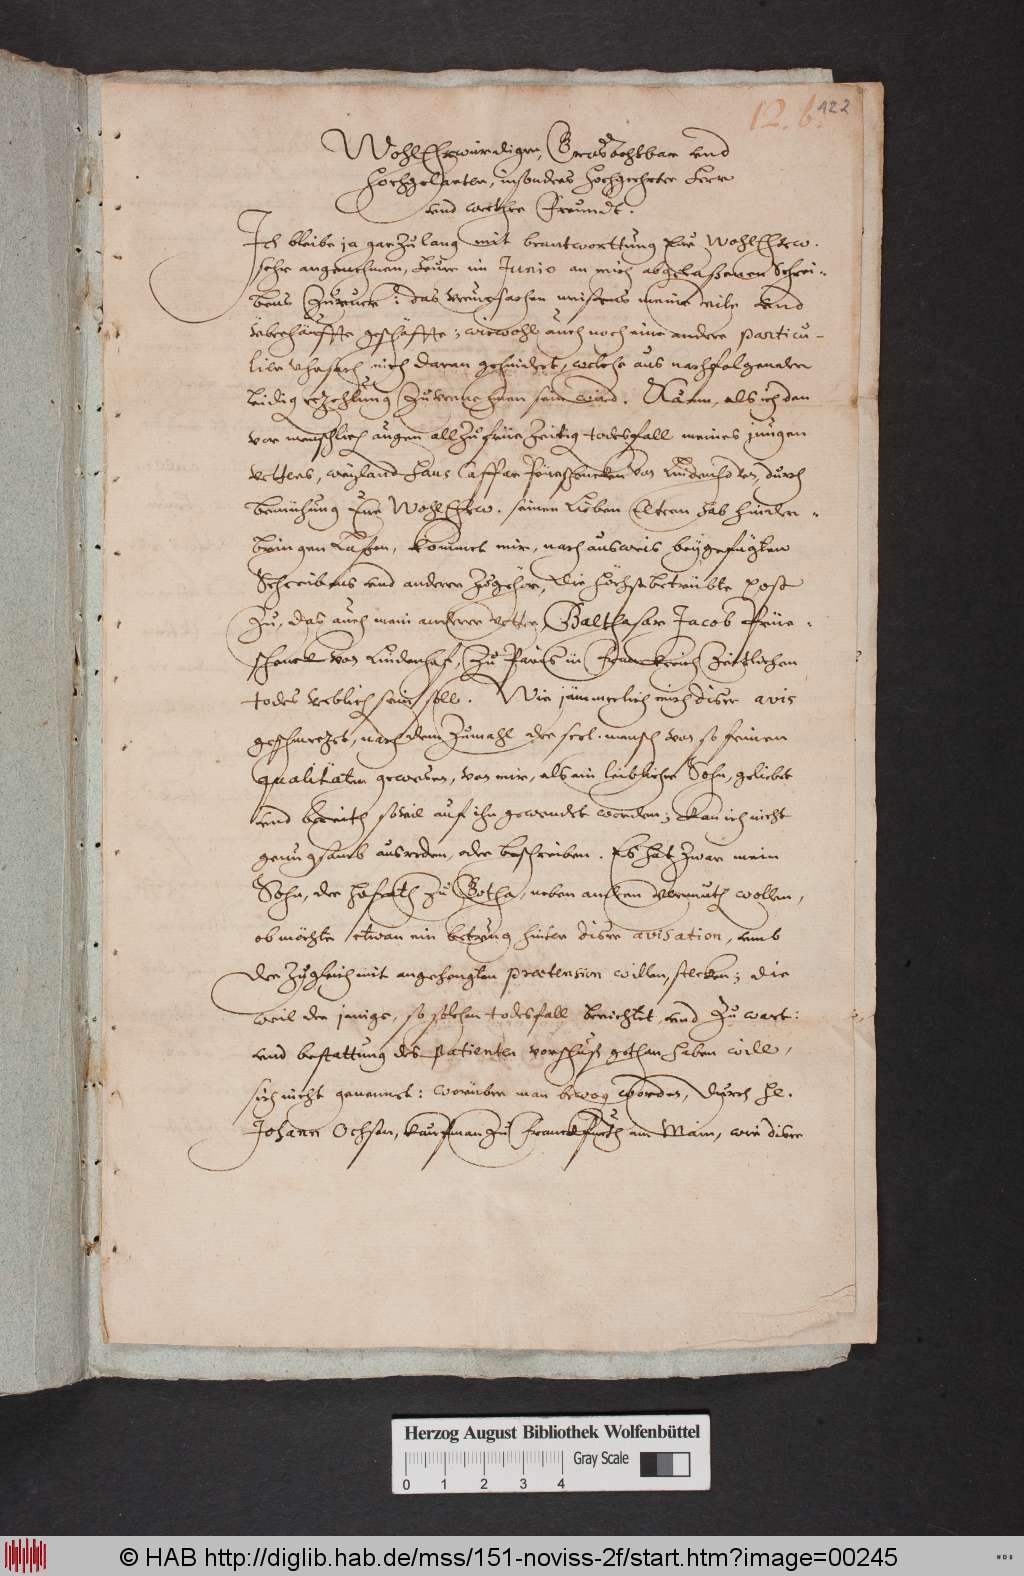 12. b. 422
WohlEhrwürdiger, Grosachtbar und
Hochgelarter, insonders Hochgeehrter Herr
und werther Freundt.
Ich bleibe ja gar zu lang mit beantworttung Eur WohlEhrw.
sehr angenehmen, heur im Junio an mich abgelaßenen Schrei-
bens zuruck: das veruhrsachen meistens meine reise und
überhäuffte geschäffte; wiewohl auch noch eine andere particu-
lier uhrsach mich daran gehindert, welche aus nachfolgender
leidig erzehlung zuvernehmen sein wird. Kaum, als ich den
vor menschlich augen allzu früezeitig todesfall meines jungen
vetters, weyland Hans Caspar von Lindenhofen, durch
bemühung Eur WohlEhrw. seinen lieben Eltern hab hinder-
bringen laßen, kommet mir, nach ausweis beygefügten
Schreibens und anderer zugehör, die höchstbetrübte post
zu, das auch mein anderer vetter, Balthasar Jacob
von Lindenhof, zu Paris in Franckreich zeittlichen
todes verblich sein soll. Wie jämmerlich mich diser avis
geschmerzet, nach dem zumahl der seel. mensch von so feinen
qualitäten gewesen, von mir, als ein leiblicher Sohn, geliebet
und bereith soviel auf ihn gewendet worden; kan ich nicht
genugsamb ausreden, oder beschreiben. Es hat zwar mein
Sohn, der Hofrath zu Gotha, neben andern vermuth wollen,
ob möchte etwan ein betrug hinter diser avisation, umb
der zugleich mit angehengten praetension willen, stecken; die
weil der jenige, so solchen todesfall berichtet, und zu wart:
und bestattung des patienten vorschuß gethan haben will,
sich nicht genennet: worüber man bewog worden, durch H.
Johann Ochsen, kauffman zu Franckfurth am Main, wie diser
Herzog August Bibliothek Wolfenbüttel
Gray Scale
0 1 2 3 4
© HAB http://diglib.hab.de/mss/151-noviss-2f/start.htm?image=00245